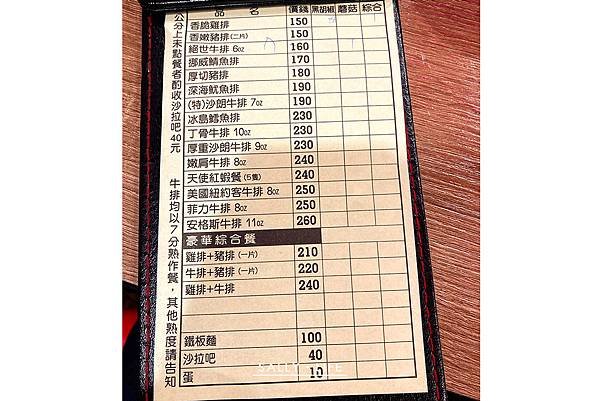 品名 價錢 黑胡椒 蘑菇 綜合
香脆雞排 150
香嫩豬排(二片) 150
絕世牛排 6oz 160
挪威鯖魚排 170
厚切豬排 180
深海魷魚排 190
(特)沙朗牛排 7oz 190
冰島鱈魚排 230
丁骨牛排 10oz 230
厚重沙朗牛排 9oz 230
嫩肩牛排 8oz 240
天使紅蝦餐(5隻) 240
美國紐約客牛排 8oz 250
菲力牛排 8oz 250
安格斯牛排 11oz 260
豪華綜合餐
雞排+豬排(一片) 210
牛排+豬排(一片) 220
雞排+牛排 240
鐵板麵 100
沙拉吧 40
蛋 10
公分上未點餐者酌收沙拉吧40元
牛排均以7分熟作餐，其他熟度請告知